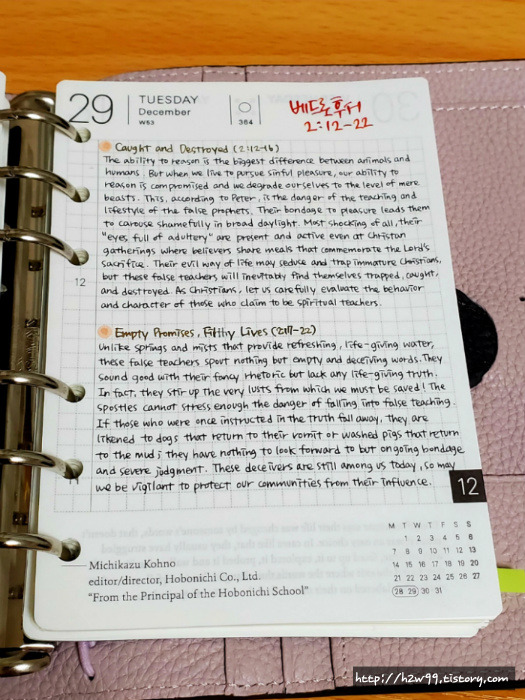 29
TUESDAY
December
W53
364
베드로후서
2:12-22
Caught and Destroyed (2:12-16)
The ability to reason is the biggest difference between animals and
humans. But when we live to pursue sinful pleasure, our ability to
reason is compromised and we degrade ourselves to the level of mere
beasts. This, according to Peter, is the danger of the teaching and
lifestyle of the false prophets. Their bondage to pleasure leads them
to carouse shamefully in broad daylight. Most shocking of all, their
"eyes full of adultery" are present and active even at Christian
gatherings where believers share meals that commemorate the Lord's
sacrifice. Their evil way of life may seduce and trap immature Christians,
but these false teachers will inevitably find themselves trapped, caught,
and destroyed. As Christians, let us carefully evaluate the behavior
and character of those who claim to be spiritual teachers.
12
Empty Promises, Filthy Lives (2:17-22)
Unlike springs and mists that provide refreshing, life-giving water,
these false teachers spout nothing but empty and deceiving words. They
sound good with their fancy rhetoric but lack any life-giving truth.
In fact, they stir up the very lusts from which we must be saved! The
spostles cannot stress enough the danger of falling into false teaching.
If those who were once instructed in the truth fall away, they are
likened to dogs that return to their vomit or washed pigs that return
to the mud; they have nothing to look forward to but ongoing bondage
and severe judgment. These deceivers are still among us today, so may
we be vigilant to protect our communities from their influence.
12
Michikazu Kohno
editor/director, Hobonichi Co., Ltd.
"From the Principal of the Hobonichi School"
M T W T F S S
1 2 3 4 5 6
7 8 9 10 11 12 13
14 15 16 17 18 19 20
21 22 23 24 25 26 27
28 29 30 31
http://h2w99.tistory.com